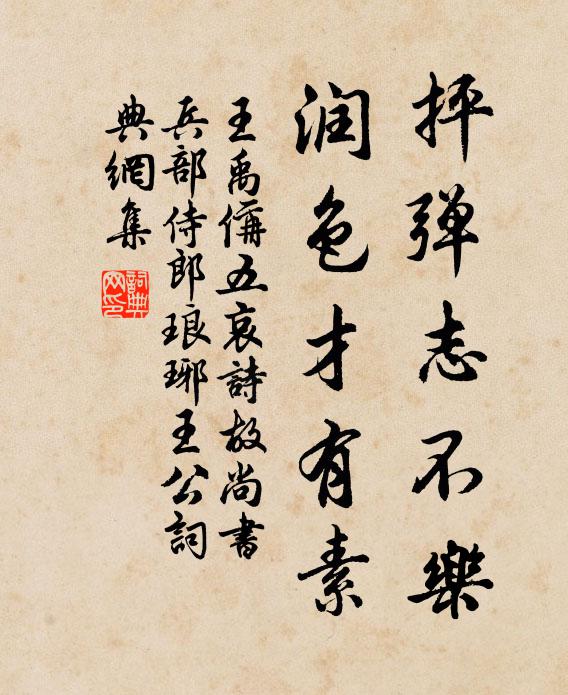 抨弹志不樂
润色才有素
王禹偁五哀詩故尚書
兵部侍郎琅琊王公詞
典網集
詞典網印